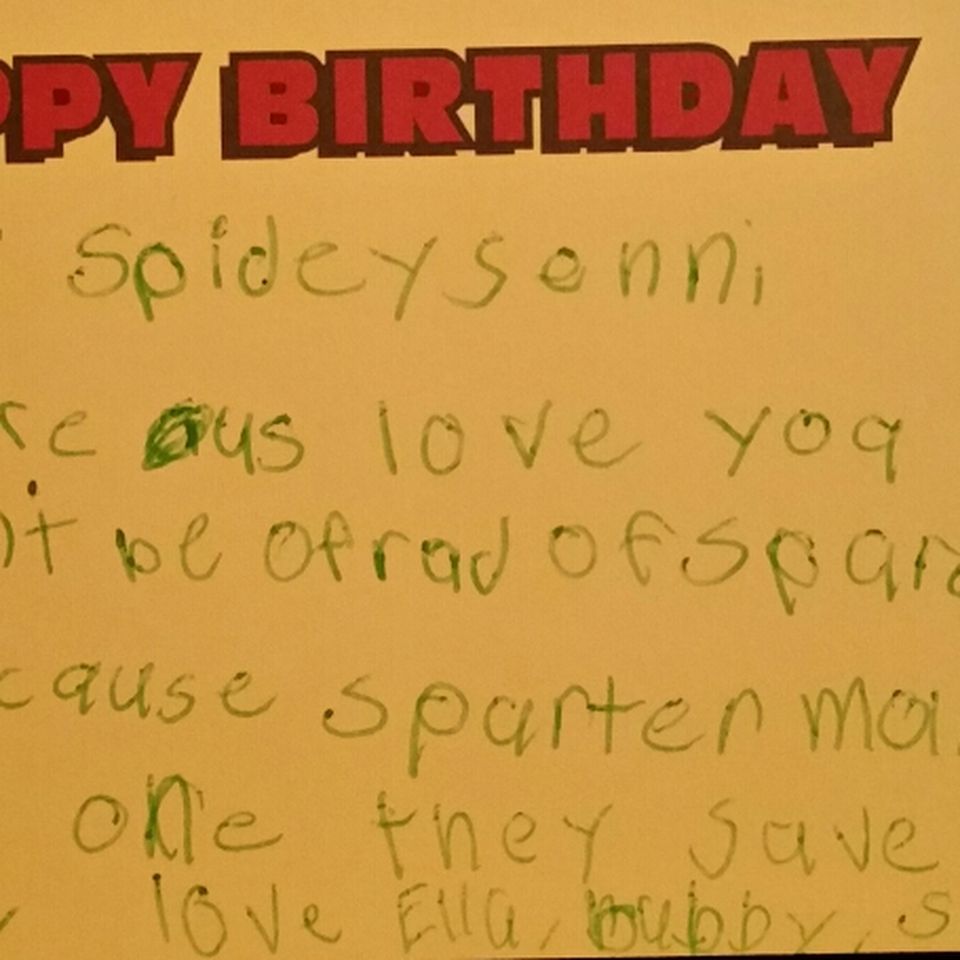 PPY BIRTHDAY
spideysonni
re aus love you
't be ofrad of spar
cause sparter ma
one they save
love Ella, bubby, s